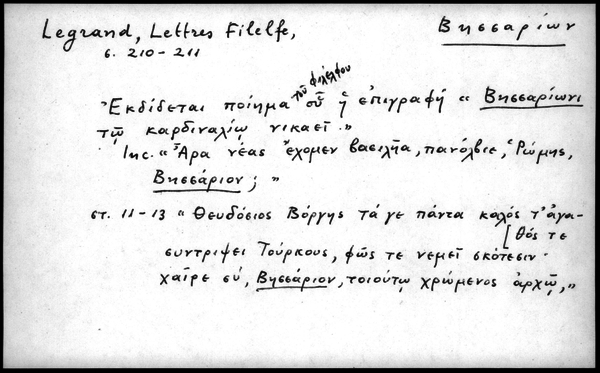 Legrand, Lettres Filelfe, Βησσαρίων
σ. 210-211
τοῦ φιλέλφου
Ἐκδίδεται ποίημα οὗ ἡ ἐπιγραφή « Βησσαρίωνι
τῷ καρδιναλίῳ νικαεῖ.»
Inc. « Ἆρα νέας ἔχομεν βασιλῆα, πανόλβιε, Ῥώμης,
Βησσάριον; »
στ. 11-13 « Θευδόσιος Βόργης τά γε πάντα καλός τ' ἀγα-
[θός τε
συντρίψει Τούρκους, φῶς τε νεμεῖ σκότεσιν·
χαῖρε σύ, Βησσάριον, τοιούτῳ χρώμενος ἀρχῷ,»